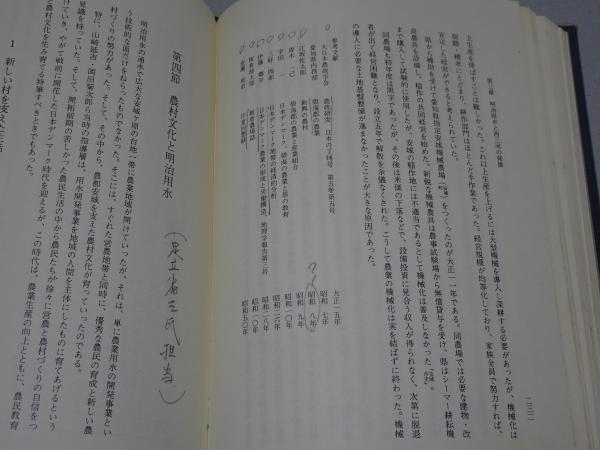 第三章 明治用水と西三河の発展
二三二
上生産を伸ばすことは難しかった。これ以上生産を上げるには大型機械を導入し深耕する必要があったが、機械化は
脱穀・籾米にとどまり、耕作部門はほとんど手作業であった。経営規模が均等化しており、家族全員で努力すれば、
安定した経営ができると考えられていた。
県から補助を受けて愛知県指定安城機械農場をつくったのが大正一一年である。同農場では必要な建物・改
良農具を設備し、稲作の共同経営を始めた。新鋭な機械農具は農事試験場から無償貸与を受け、県はシーマー耕耘機
まで購入して試験的に使用したが、安城の稲作地には不適当であるとして機械化は普及しなかった
同農場も初年度は黒字であったが、その後は米価の下落などで、設備投資に見合う収入が得られなく、次第に脱退
者が出て経営困難となり、設立五年で解散を余儀なくされた。こうして農業の機械化は実を結ばずに終わった。機械
の導入に必要な土地基盤整備が進まなかったことが大きな原因であった。
参考文献
大日本農政学会 農政研究 日本デンマーク号 第五巻第五号 大正一五年
愛知県内務部 碧海郡の農業 昭和 七年
江坂佐太郎 新興の農村 昭和 九年
青木 一己 碧海郡の農業と産業組合 昭和 八年
宇田 日本デンマーク、碧海の農業と郷の教育 昭和一〇年
三好 四郎 日本デンマーク地帯の経済的分析 昭和一八年
伊藤 郷平 日本デンマーク農業の形成と労働構造、地理学報告第三号 昭和二八年
昭和一〇年
昭和五〇年
第四節 農村文化と明治用水
(足立省三氏担当)
明治用水の通水で広大な安城ヶ原の台地一帯に農業地域が開けていったが、それは、単に農業用水の開発事業とい
う技術的な面だけをねらったものでなかった。そこには、すぐれた営農地帯と同時に、優秀な農民の育成と新しい農
村づくりの努力があった。そして、その中から、農都安城を支えた農村文化が育っていったのである。
特に、山崎延吉・岡田菊次郎ら当時の指導層は、用水開発事業を地域の人間を主体にしたものに育てあげるという
見識を持っていた。そして、開拓前期の苦しかった農民生活の中から農民たちが徐々に営農と農村づくりの自信をつ
けていき、やがて戦前に開花した日本デンマーク時代を迎えるが、この時代は、農業生産の向上とともに、農民教育
と農村文化を生み育てる特筆すべきときでもあった。
1 新しい村を支えた生活